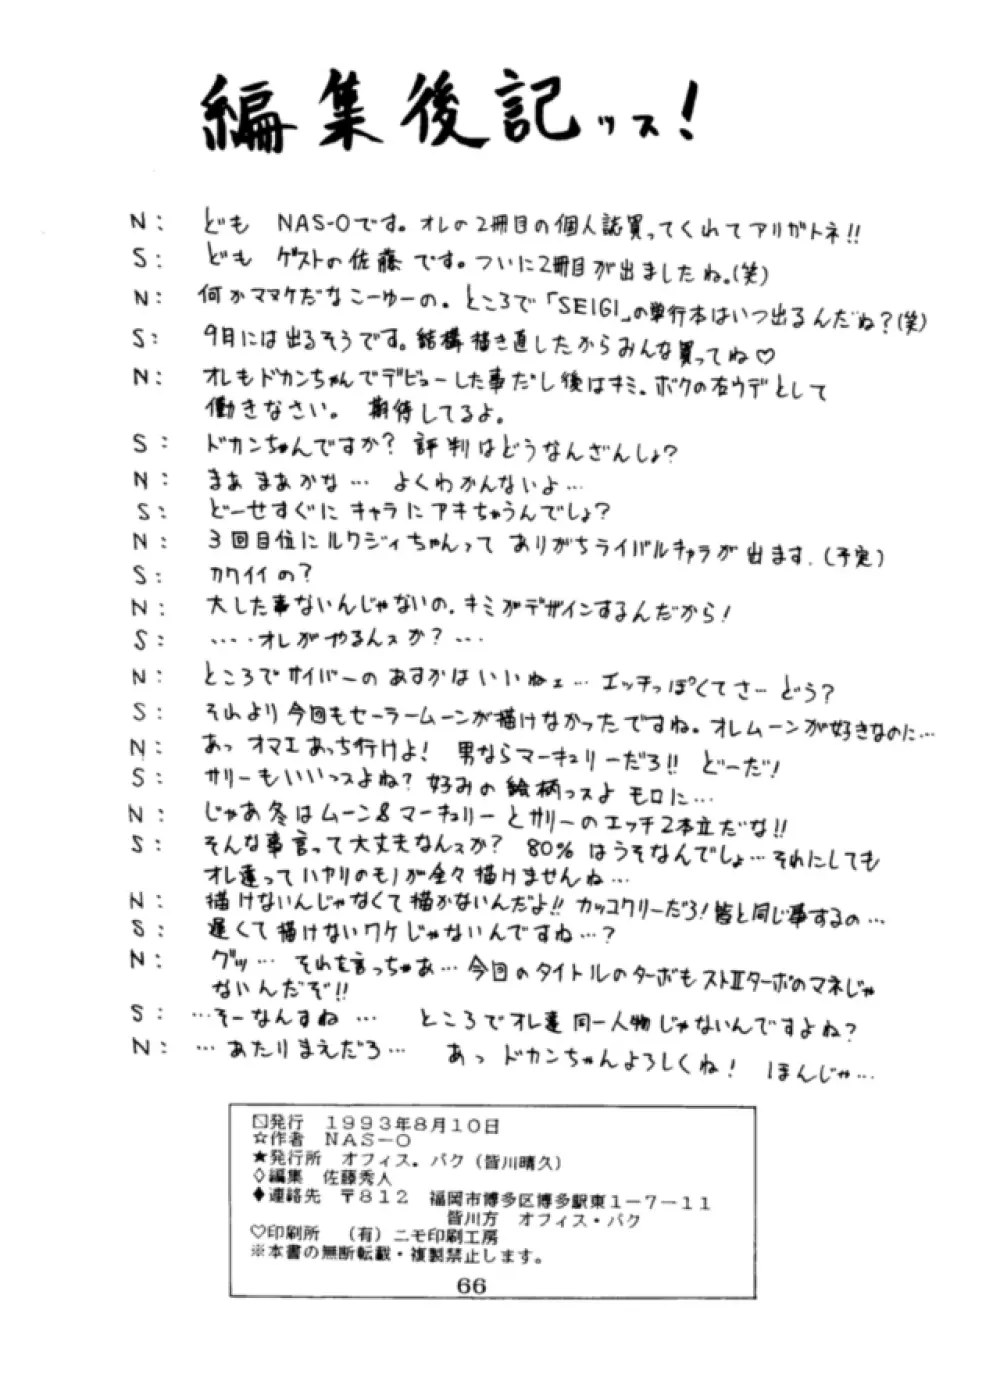 編集後記ッス!
N: ども NAS-Oです。オレの2冊目の個人誌買ってくれてアリガトネ!!
S: ども ゲストの佐藤です。ついに2冊目が出ましたね。(笑)
N: 何かママケだなこーゆーの。ところで「SEIGI」の単行本はいつ出るんだね?(笑)
S: 9月には出るそうです。結構描き直したからみんな買ってね♡
N: オレもドカンちゃんでデビューした事だし後はキミ。ボクの右ウデとして
働きなさい。 期待してるよ。
S: ドカンちゃんですか? 評判はどうなんざんしょ?
N: まぁ まぁかな… よくわかんないよ…
S: どーせすぐに キャラに アキちゃうんでしょ?
N: 3回目位にルクジィちゃんって ありがちライバルキャラが出ます.(予定)
S: カワイイの?
N: 大した事ないんじゃないの.キミがデザインするんだから!
S: ‥‥オレがやるんスか?‥‥
N: ところでサイバーのあすかはいいねェ… エッチっぽくてさ… どう?
S: それより今回もセーラームーンが描けなかったですね。オレムーンが好きなのに…
N: あっ オマエあっち行けよ! 男ならマーキュリーだろ!! どーだ!
S: サリーもいいっスよね? 好みの絵柄っスよ モロに…
N: じゃあ冬はムーン&マーキュリーとサリーのエッチ2本立だな!!
S: そんな事言って大丈夫なんスか? 80%はうそなんでしょ…それにしても
オレ達ってハヤリのモノが全々描けませんね…
N: 描けないんじゃなくて描かないんだよ!! カッコワリーだろ!皆と同じ事するの…
S: 遅くて描けないワケじゃないんですね…?
N: グッ… それを言っちゃあ…今回のタイトルのターボもストⅡターボのマネじゃ
ないんだぞ!!
S: …そーなんすね … ところでオレ達同一人物じゃないんですよね?
N: …あたりまえだろ… あっ ドカンちゃんよろしくね! ほんじゃ…
発行 1993年8月10日
☆作者 NAS-O
★発行所 オフィス.バク(皆川晴久)
◇編集 佐藤秀人
◆連絡先 〒812 福岡市博多区博多駅東1-7-11
皆川方 オフィス・バク
♡印刷所 (有)ニモ印刷工房
※本書の無断転載・複製禁止します。
66